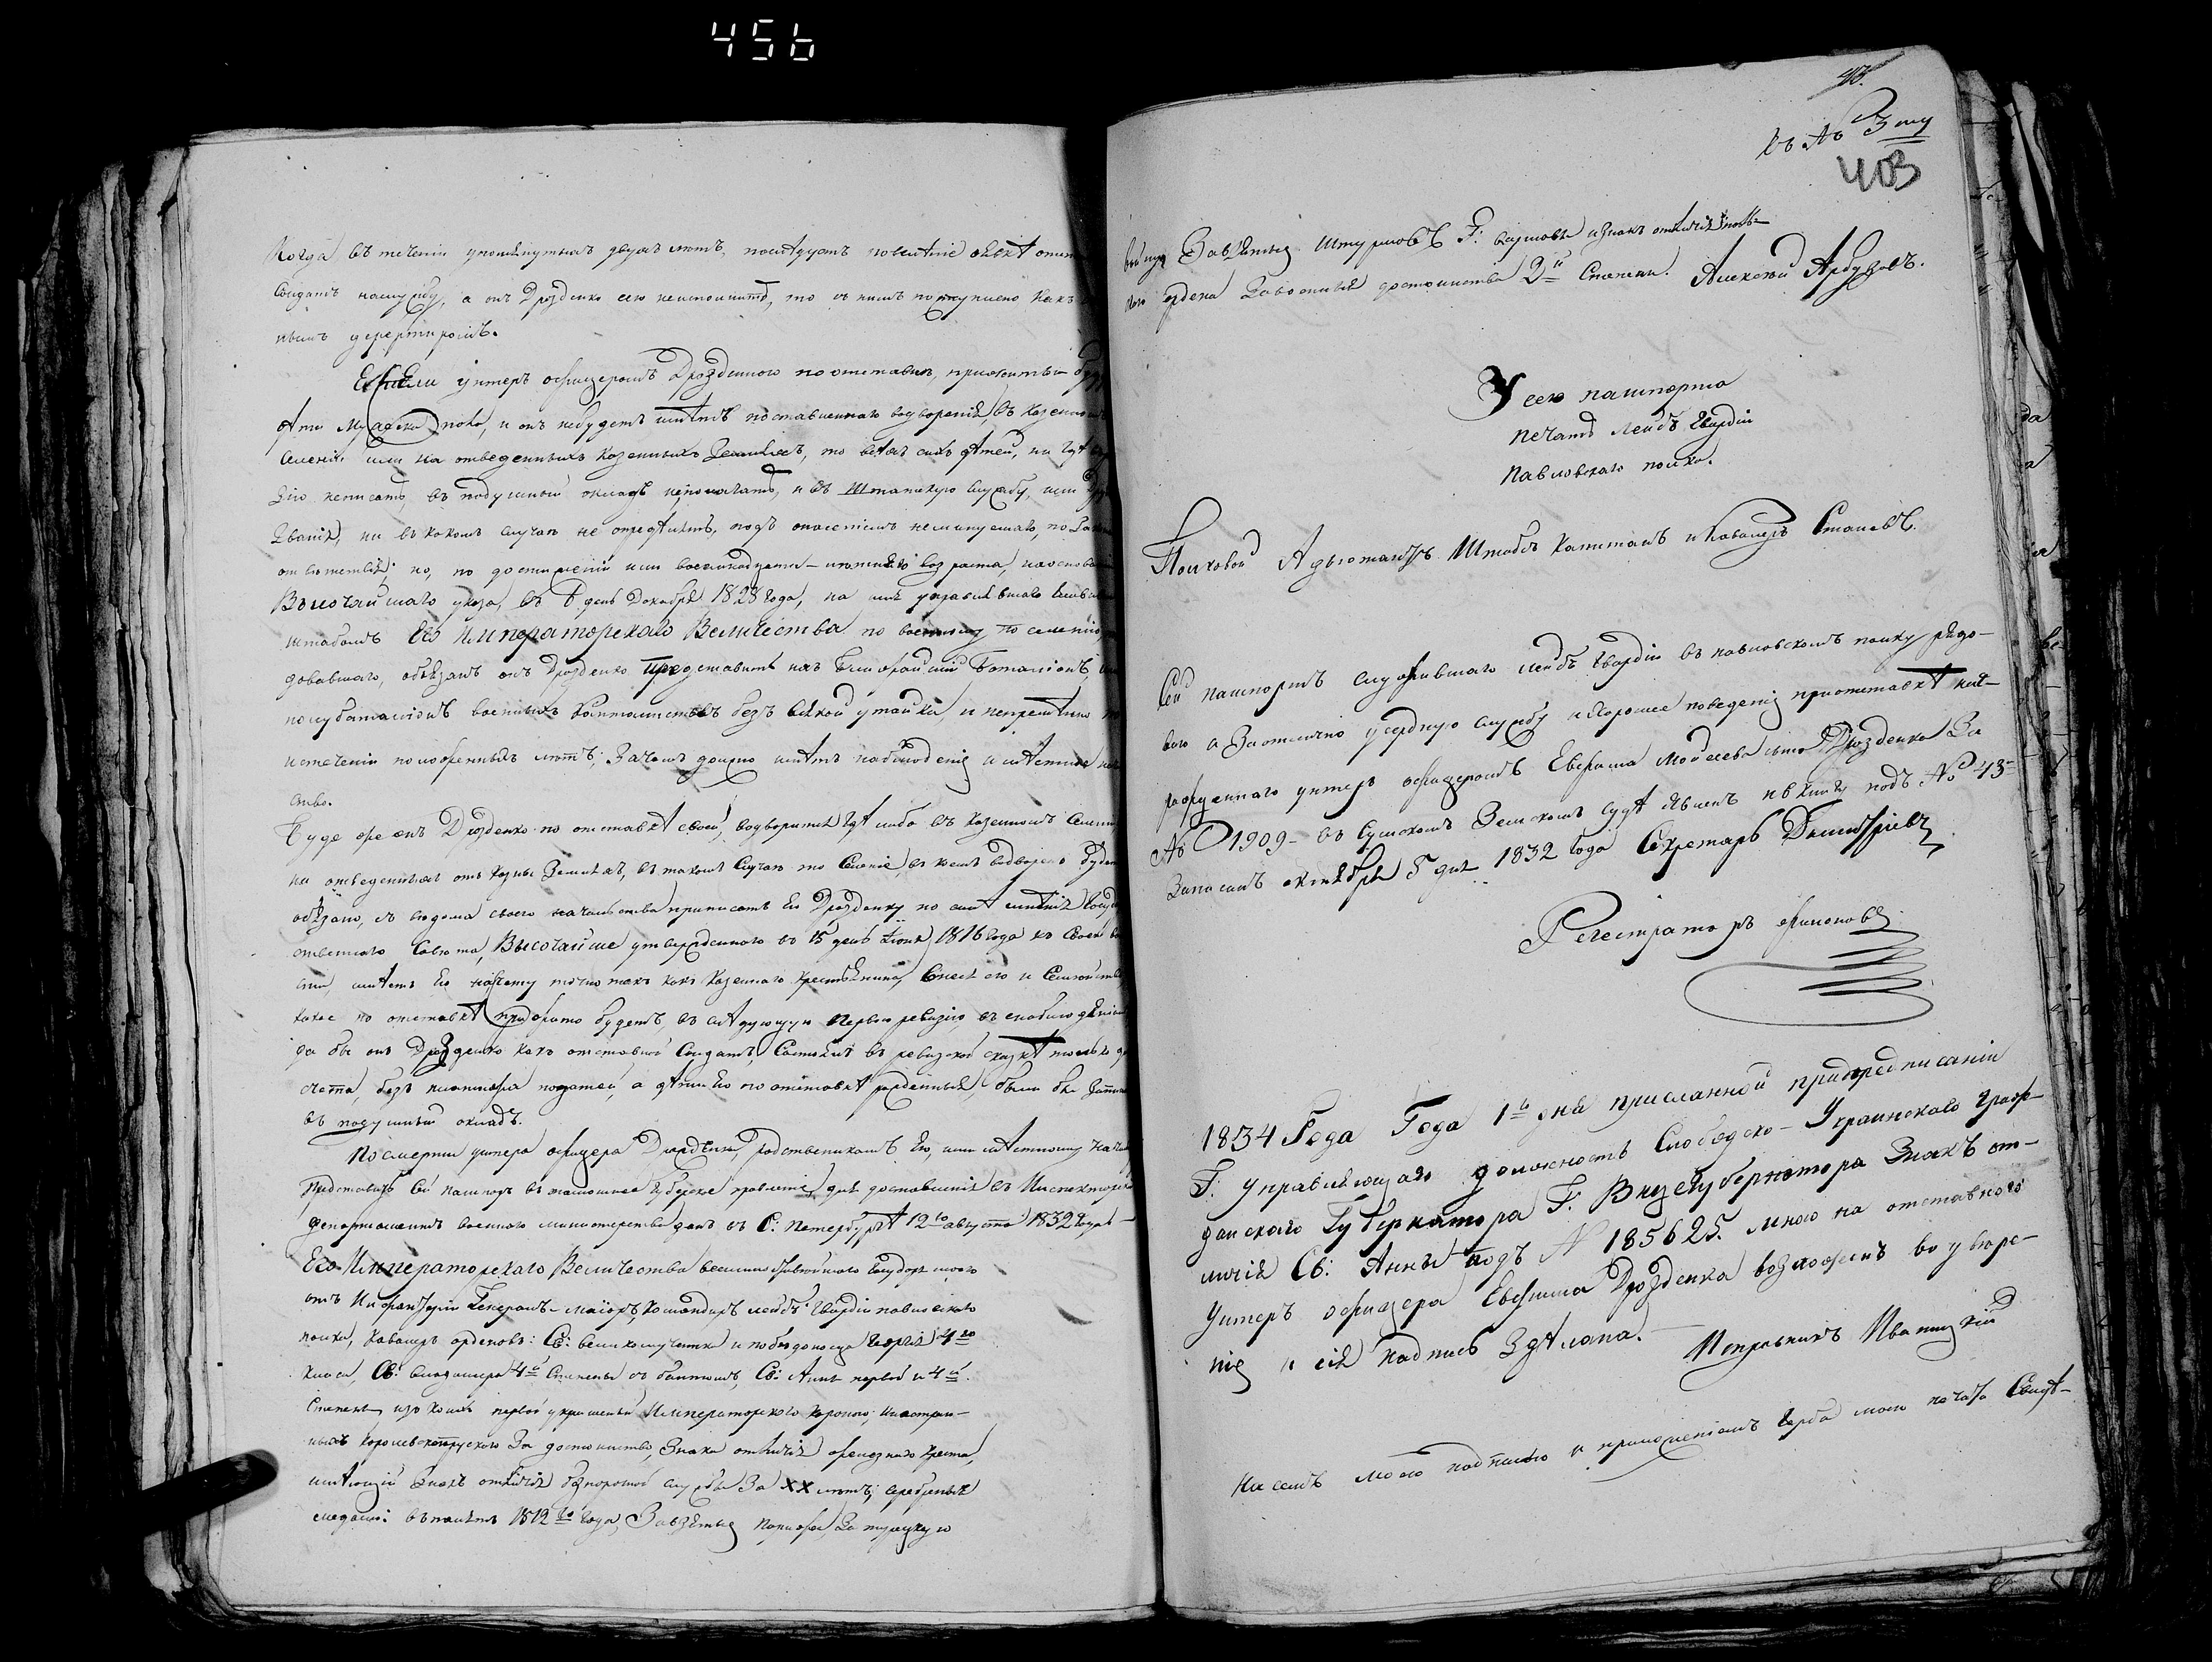 456
Когда въ теченіи упомянутыхъ двухъ лѣтъ, послѣдуетъ повелѣніе о
Солдатъ на службу, а онъ Дрозденко сего неисполнитъ, то съ нимъ поступлено какъ
нымъ дезертиромъ.
Ежели унтеръ офицеромъ Дрозденкою по отставкѣ, прижиты
дѣти мужска пола, и онъ небудетъ имѣть постояннаго водворенія, въ казенномъ
Селеніи или на отведенныхъ казенныхъ Земляхъ, то всѣхъ сихъ дѣтей, ни гдѣ
неписать, въ подушный окладъ неполагать, и въ Штатскую службу, или
Званія, ни въ какомъ случаѣ не опредѣлять, подъ опасеніемъ неминуемаго, по
отвѣтствія; но, по достиженіи ими восемнадцати-лѣтняго возраста, на
Высочайшаго указа, въ 6 день Декабря 1828 года, на имя управлявшаго
штабомъ Его Императорскаго Величества по военному поселенію
довавшаго, обязанъ онъ Дрозденко представить ихъ въ ближайшій Баталіонъ,
полубаталіонъ военныхъ кантонистовъ безъ всякой утайки, и непремѣнно
истеченіи положенныхъ лѣтъ; За чемъ должно имѣть наблюденіе и мѣстное
ство.
Буде же онъ Дрозденко по отставкѣ своей, водворится гдѣ либо въ казенномъ Селеніи
на отведенныхъ отъ казны Земляхъ, въ такомъ Случаѣ то Селеніе, въ коемъ водворено будетъ
обязано, съ вѣдома своего начальства приписать Его Дрозденку по силѣ мнѣнія Госуд
ственнаго Совѣта, Высочайше утвержденнаго въ 15 день Іюня 1816 года къ своей
имѣть Его на счету точно такъ какъ казеннаго крестьянина, внеся его и Семейство
какое по отставкѣ прижито будетъ, въ слѣдующую первую ревизію, въ
да бы онъ Дрозденко какъ отставной Солдатъ, Состоялъ въ ревизской сказкѣ только
счета, безъ платежа податей, а дѣти Его по отставкѣ рожденныя, были бы
въ подушный окладъ.
По смерти унтеръ офицера Дрозденки, родственникамъ Его, или мѣстному
Представить Сей пашпортъ въ тамошнее Губернское правленіе, для доставленія въ Инспекторскій
департаментъ военного министерства данъ въ С: Петербургѣ 12го августа 1832 года
Его Императорскаго Величества всемилостивѣйшаго Государя моего
отъ Инфантеріи Генералъ-маіоръ, командиръ лейбъ гвардіи павловскаго
полка, кавалеръ орденовъ: Св: великомученика и побѣдоносца Георгія 4го
класа, Св: Владимера 4й Степени съ бантомъ, Св: Анны первой и 4й
Степени, изъ коихъ первой украшенный Императорскою короною; иностран-
ныхъ королевскопрусскаго За достоинство, Знака отличія желѣзнаго креста,
имѣющій Знакъ отличія безпорочной службы За XX лѣтъ; серебреныя
медали: въ память 1812го года, За взятіе Парижа, За турецкую
43.
въ Аѣ 3му
403
войну За взятіе Штурмомъ Г: варшавы и Знакъ отличія поль-
скаго ордена За военныя достоинства 2й Степени. Алексѣй Арбузовъ.
У сего пашпорта
печать Лейбъ Гвардіи
Павловскаго полка.
Полковой Адъютантъ Штабсъ капитанъ и Кавалеръ Стааевъ.
Сей пашпортъ служившаго лейбъ гвардіи въ павловскомъ полку рядо-
вого а За отлично усердную службу и хорошее поведеніе приотставкѣ наг-
ражденнаго унтеръ офицеромъ Евфима Моисѣева сына Дрозденка За
№ 1909- въ Сумскомъ Земскомъ судѣ явленъ и въ книгу подъ № 43
Записанъ октября 5 дня 1832 года Секретарь Дмитріевъ
Регистраторъ
1834 Года Года 1го дня присланной при предписаніи
Г: управляющаго должность Слободско-Украинскаго Граж-
данскаго Губернатора Г: Вицегубернатора Знакъ от-
личія Св: Анны подъ № 185625. мною на отставного
Унтеръ офицера Евфима Дрозденка возложенъ во увѣре-
ніе и сія надпись Здѣлана. Исправникъ Иваницкій
На семъ моею подписью и приложеніемъ герба моего печати Свидѣ-